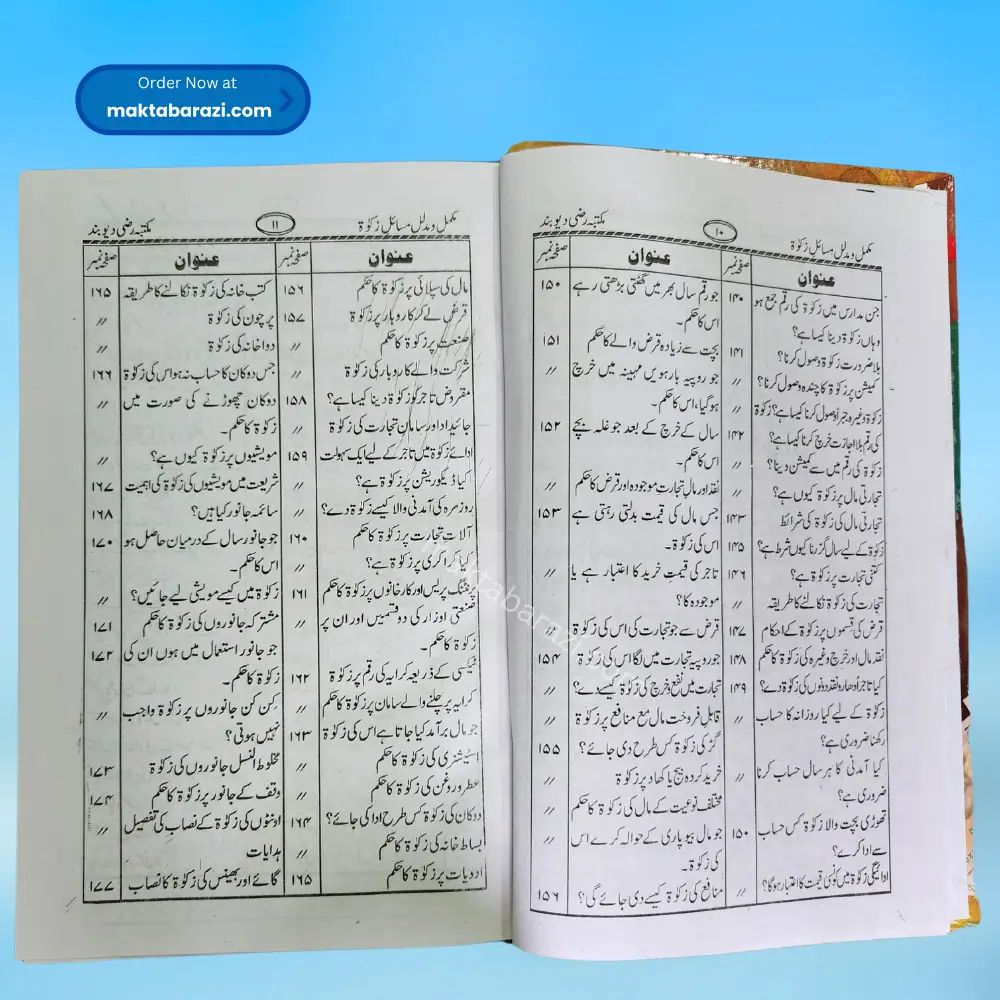 Order Now at
maktabarazi.com
مکمل و مدلل مسائل زکوٰۃ
۱۰
مکتبہ رضی دیوبند
عنوان
صفحہ نمبر
جن مدارس میں زکوٰۃ کی رقم جمع ہو ۱۴۰
وہاں زکوٰۃ دینا کیسا ہے؟
بلاضرورت زکوٰۃ وصول کرنا؟ ۱۴۱
کمیشن پر زکوٰۃ کا چندہ وصول کرنا؟ 〃
زکوٰۃ وغیرہ جبراً وصول کرنا کیسا ہے؟ زکوٰۃ 〃
کی رقم بلا اجازت خرچ کرنا کیسا ہے؟ ۱۴۲
زکوٰۃ کی رقم میں سے کمیشن دینا؟ 〃
تجارتی مال پر زکوٰۃ کیوں ہے؟ 〃
تجارتی مال کی زکوٰۃ کی شرائط ۱۴۳
زکوٰۃ کے لیے سال گزرنا کیوں شرط ہے؟ ۱۴۵
کتنی تجارت پر زکوٰۃ ہے؟ ۱۴۶
تجارت کی زکوٰۃ نکالنے کا طریقہ 〃
قرض کی قسموں پر زکوٰۃ کے احکام ۱۴۷
نقد مال اور خرچ وغیرہ کی زکوٰۃ کا حکم ۱۴۸
کیا تاجر ادھار و نقد دونوں کی زکوٰۃ دے؟ ۱۴۹
زکوٰۃ کے لیے کیا روزانہ کا حساب 〃
رکھنا ضروری ہے؟
کیا آمدنی کا ہر سال حساب کرنا 〃
ضروری ہے؟
تھوڑی بچت والا زکوٰۃ کس حساب ۱۵۰
سے ادا کرے؟
ادائیگی زکوٰۃ میں کونسی قیمت کا اعتبار ہوگا؟ 〃
عنوان
صفحہ نمبر
جو رقم سال بھر میں گھٹتی بڑھتی رہے ۱۵۰
اس کا حکم۔
بچت سے زیادہ قرض والے کا حکم ۱۵۱
جو روپیہ بارہویں مہینہ میں خرچ 〃
ہو گیا، اس کا حکم۔
سال کے خرچ کے بعد جو غلہ بچے ۱۵۲
اس کا حکم۔
نقد اور مال تجارت موجودہ اور قرض کا حکم 〃
جس مال کی قیمت بدلتی رہتی ہے ۱۵۳
اس کی زکوٰۃ۔
تاجر کی قیمت خرید کا اعتبار ہے یا 〃
موجودہ کا؟
قرض سے جو تجارت کی اس کی زکوٰۃ 〃
جو روپیہ تجارت میں لگا اس کی زکوٰۃ ۱۵۴
تجارت میں نفع و خرچ کی زکوٰۃ کیسے دے؟ 〃
قابل فروخت مال مع منافع پر زکوٰۃ 〃
گڑ کی زکوٰۃ کس طرح دی جائے؟ ۱۵۵
خرید کردہ بیج یا کھاد پر زکوٰۃ 〃
مختلف نوعیت کے مال کی زکوٰۃ کا حکم 〃
جو مال بیوپاری کے حوالہ کرے اس 〃
کی زکوٰۃ۔
منافع کی زکوٰۃ کیسے دی جائے گی؟ ۱۵۶
مکمل و مدلل مسائل زکوٰۃ
۱۱
مکتبہ رضی دیوبند
عنوان
صفحہ نمبر
مال کی سپلائی پر زکوٰۃ کا حکم ۱۵۶
قرض لے کر کاروبار پر زکوٰۃ ۱۵۷
صنعت پر زکوٰۃ کا حکم 〃
شرکت والے کاروبار کی زکوٰۃ 〃
مقروض تاجر کو زکوٰۃ دینا کیسا ہے؟ ۱۵۸
جائیداد اور سامان تجارت کی زکوٰۃ 〃
ادائے زکوٰۃ میں تاجر کے لیے ایک سہولت ۱۵۹
کیا ڈیکوریشن پر زکوٰۃ ہے؟ 〃
روز مرہ کی آمدنی والا کیسے زکوٰۃ دے؟ 〃
آلات تجارت پر زکوٰۃ کا حکم ۱۶۰
کیا کراکری پر زکوٰۃ ہے؟ 〃
پرنٹنگ پریس اور کارخانوں پر زکوٰۃ کا حکم ۱۶۱
صنعتی اوزار کی دو قسمیں اور ان پر 〃
زکوٰۃ کا حکم۔
ٹیکسی کے ذریعہ کرایہ کی رقم پر زکوٰۃ ۱۶۲
کرایہ پر چلنے والے سامان پر زکوٰۃ کا حکم 〃
جو مال برآمد کیا جاتا ہے اس کی زکوٰۃ ۱۶۳
اسٹیشنری کی زکوٰۃ کا حکم 〃
عطر و روغن کی زکوٰۃ کا حکم 〃
دوکان کی زکوٰۃ کس طرح ادا کی جائے؟ ۱۶۴
بساط خانہ کی زکوٰۃ کا حکم 〃
ادویات پر زکوٰۃ کا حکم ۱۶۵
عنوان
صفحہ نمبر
کتب خانہ کی زکوٰۃ نکالنے کا طریقہ ۱۶۵
پرچون کی زکوٰۃ 〃
دواخانہ کی زکوٰۃ 〃
جس دوکان کا حساب نہ ہو اس کی زکوٰۃ ۱۶۶
دوکان چھوڑنے کی صورت میں 〃
زکوٰۃ کا حکم۔
مویشیوں پر زکوٰۃ کیوں ہے؟ 〃
شریعت میں مویشیوں کی زکوٰۃ کی اہمیت ۱۶۷
سائمہ جانور کیا ہیں؟ ۱۶۸
جو جانور سال کے درمیان حاصل ہو ۱۷۰
اس کا حکم۔
زکوٰۃ میں کیسے مویشی لیے جائیں؟ 〃
مشترکہ جانوروں کی زکوٰۃ کا حکم ۱۷۱
جو جانور استعمال میں ہوں ان کی ۱۷۲
زکوٰۃ کا حکم۔
کن کن جانوروں پر زکوٰۃ واجب 〃
نہیں ہوتی؟
مخلوط النسل جانوروں کی زکوٰۃ ۱۷۳
وقف کے جانور پر زکوٰۃ کا حکم ۱۷۴
اونٹوں کی زکوٰۃ کے نصاب کی تفصیل 〃
ہدایات
گائے اور بھینس کی زکوٰۃ کا نصاب ۱۷۷